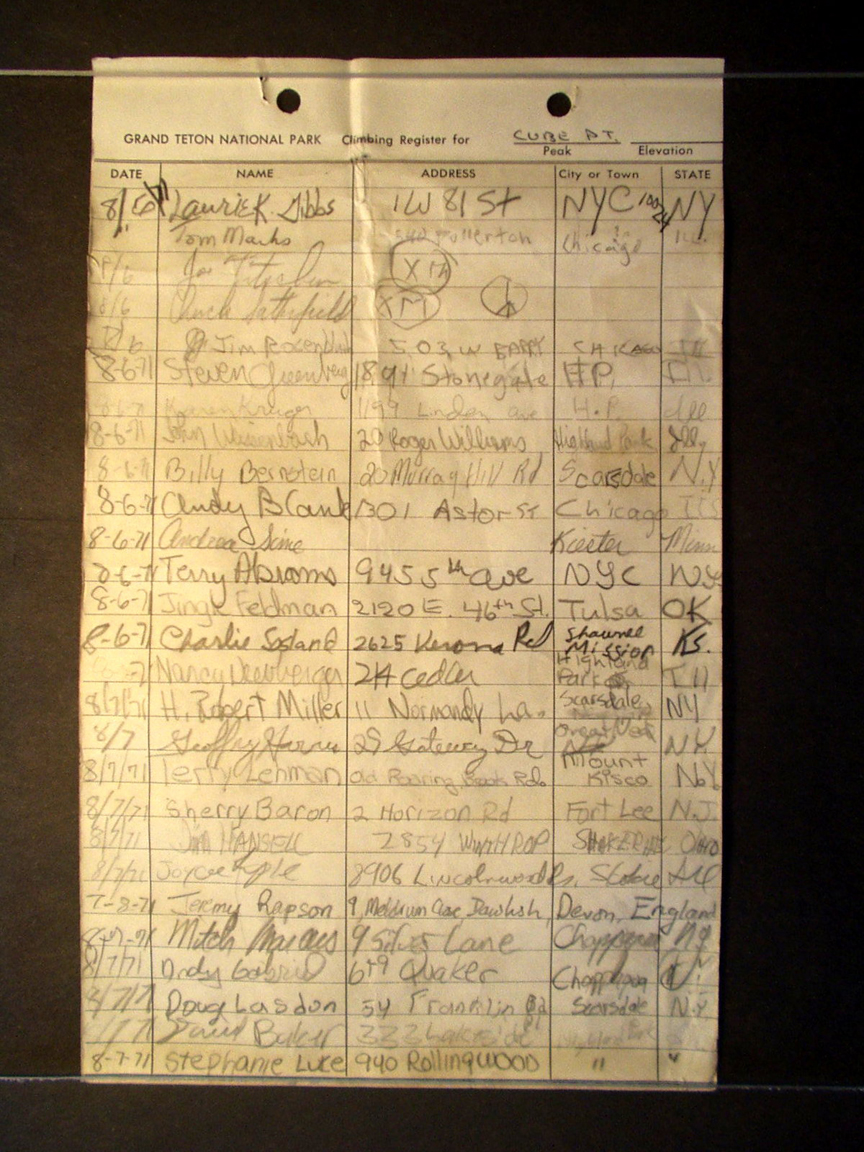 GRAND TETON NATIONAL PARK Climbing Register for CUBE PT.
Peak Elevation
DATE NAME ADDRESS City or Town STATE
8/6/71 Laurie K. Gibbs 1 W 81 St NYC 10024 NY
Tom Marks 540 Fullerton Chicago Ill.
8/6 Joe XM
8/6 Chuck Satterfield XM
8/6 Jim Rosenblum 503 W BARRY CHICAGO Ill
8-6-71 Steven Greenberg 1894 Stonegate H.P. Ill.
8-6-71 Karen Kruger 1199 Linden ave H.P. Ill
8-6-71 John Weissenbach 20 Roger Williams Highland Park Ill
8-6-71 Billy Bernstein 20 Murray Hill Rd Scarsdale N.Y
8-6-71 Andy Blank 1301 Astor ST Chicago Ill
8-6-71 Andrea Sime Kiester Minn
8-6-71 Terry Abrams 945 5th ave NYC NY
8-6-71 Jingle Feldman 2120 E. 46th St. Tulsa OK
8-6-71 Charlie Sosland 2625 Verona Rd Shawnee Mission Ks.
Nancy 214 Cedar Highland Park Ill
8/7/71 H. Robert Miller 11 Normandy La. Scarsdale NY
8/7 Geoffry 25 Gateway Dr Great Neck N.Y.
8/7/71 Terry Lehman Old Roaring Brook Rd. Mount Kisco N.Y.
8/7/71 Sherry Baron 2 Horizon Rd Fort Lee N.J.
8/7/71 Jim HANSELL 2854 WINTHROP SHAKER HTS OHIO
8/7/71 Joyce 8906 Lincolnwood Dr. Skokie Ill
7-8-71 Jeremy Rapson 9, Meldrum Close Dawlish, Devon, England
8-7-71 Mitch Marcus 9 Silver Lane Chappaqua NY
8/7/71 Andy Gabriel 649 Quaker Chappaqua
8/7/71 Doug Lasdon 54 Franklin Rd Scarsdale N.Y.
8/7/71 David Baker 333 Lakeside Highland Park
8-7-71 Stephanie Luce 940 Rollingwood " "